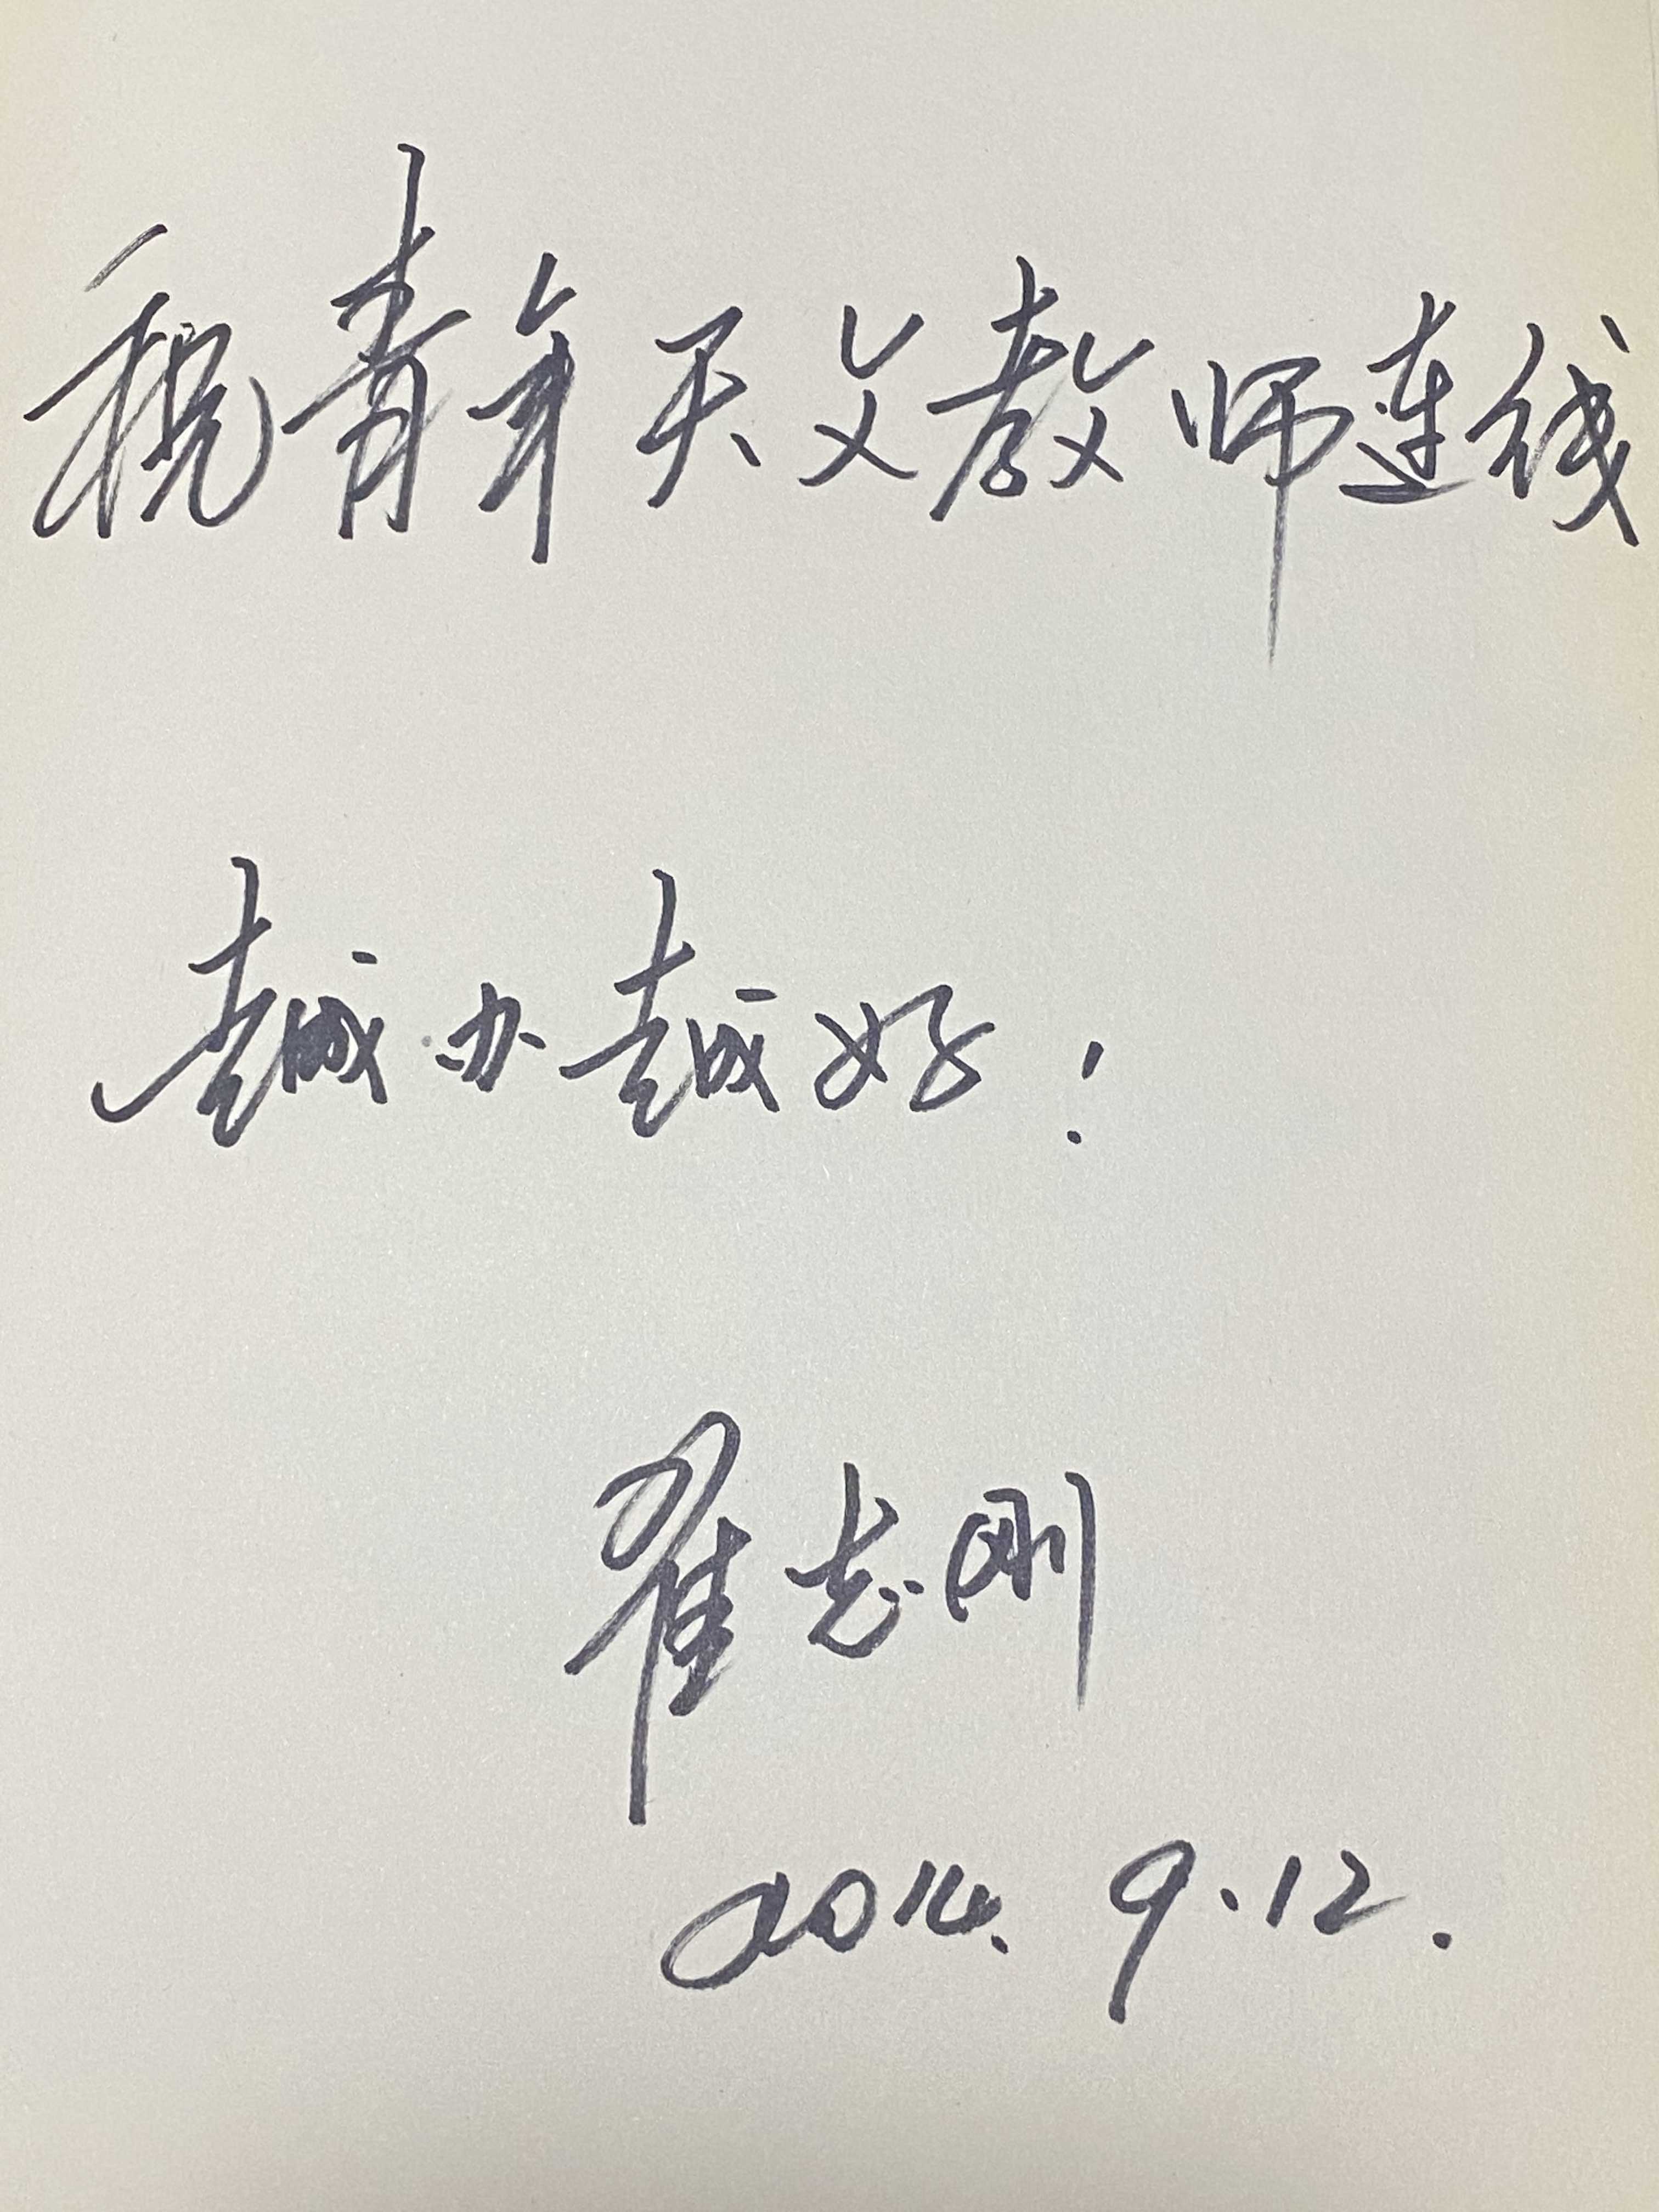 祝青年天文教师连线
越办越好!
翟志刚
2014. 9.12.